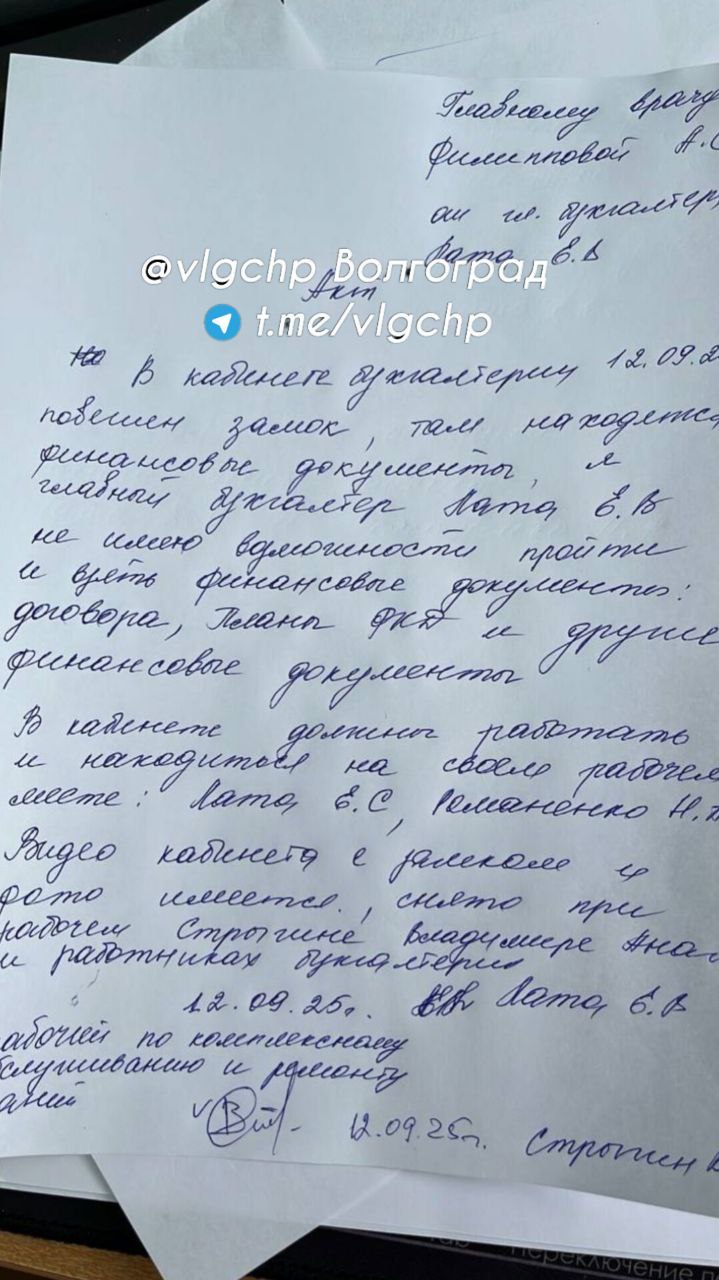 Главному врачу
Филипповой А.С
от гл. бухгалтер
Лата Е.В
@vlgchp Волгоград
Акт
t.me/vlgchp
В кабинете бухгалтерии 12.09.2
повешен замок, там находятся
финансовые документы, я
главный бухгалтер Лата Е.В
не имею возможности пройти
и взять финансовые документы:
договора, Планы ФХД и другие
финансовые документы
В кабинете должны работать
и находиться на своем рабочем
месте: Лата Е.С, Романенко Н.
Видео кабинета с замком и
фото имеется, снято при
рабочем Стрыгине Владимире Ана
и работниках бухгалтерии
12.09.25г. Лата Е.В
абочий по комплексному
бслуживанию и ремонту
аний
12.09.25г. Стрыгин В
Переключение п